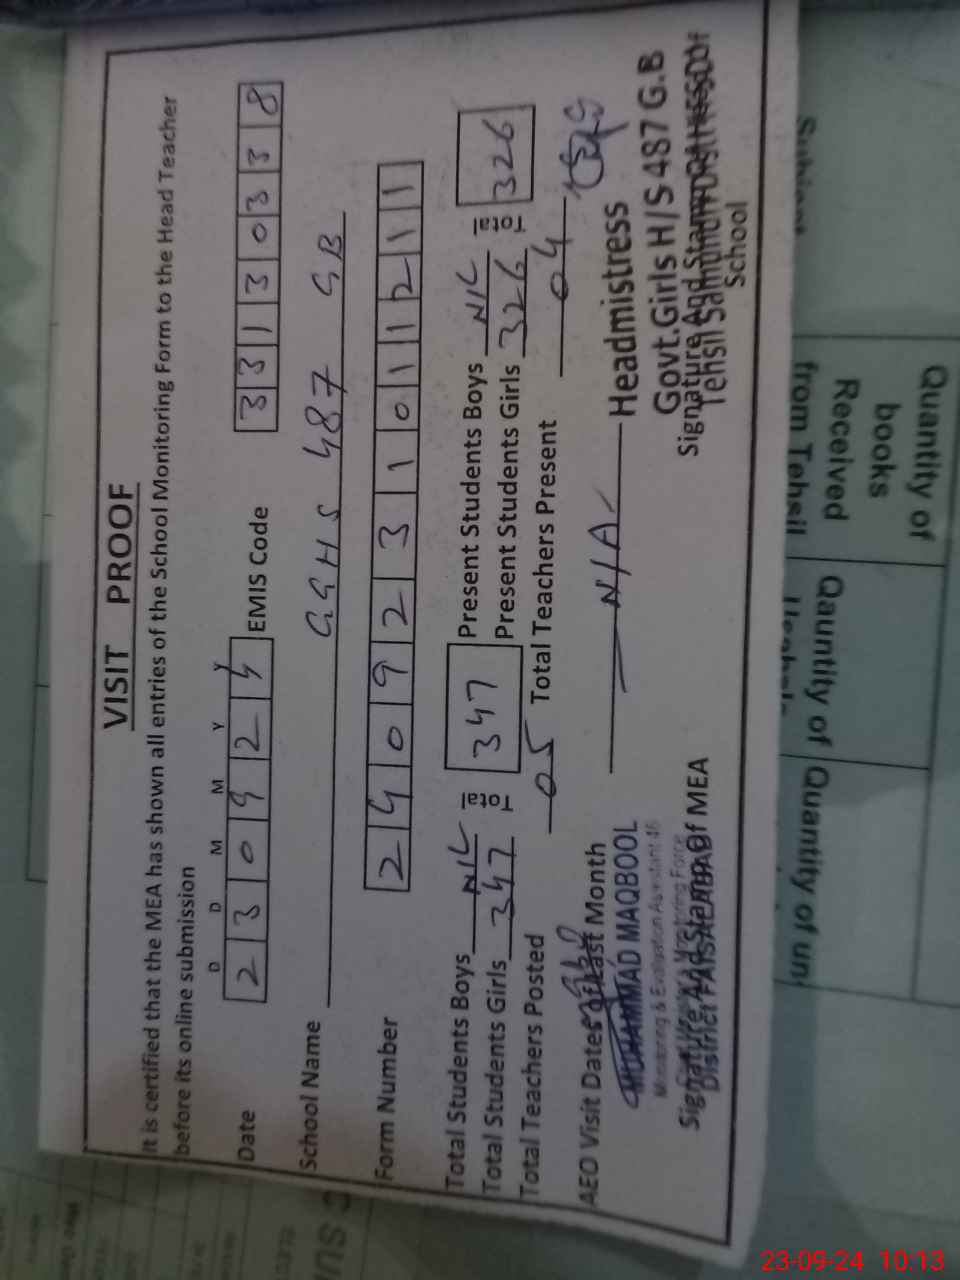 VISIT PROOF
It is certified that the MEA has shown all entries of the School Monitoring Form to the Head Teacher
before its online submission
D D M M Y Y
Date 2 3 0 9 2 4 EMIS Code 3 3 1 3 0 3 3 8
School Name GGHS 487 GB
Form Number 2 4 0 9 2 3 1 0 1 1 2 1 1
Total Students Boys NIL Total 347 Present Students Boys NIL Total 326
Total Students Girls 347 Present Students Girls 326
Total Teachers Posted 05 Total Teachers Present 04
AEO Visit Dates of Last Month N/A
MUHAMMAD MAQBOOL
Monitoring & Evaluation Assistant 46
Signature And Stamp Of MEA
District FAISALABAD
Headmistress
Govt.Girls H/S 487 G.B
Signature And Stamp
Tehsil Samundri
School
Quantity of
books
Received
from Tehsil
Qauntity of
Quantity of un
23-09-24 10:13